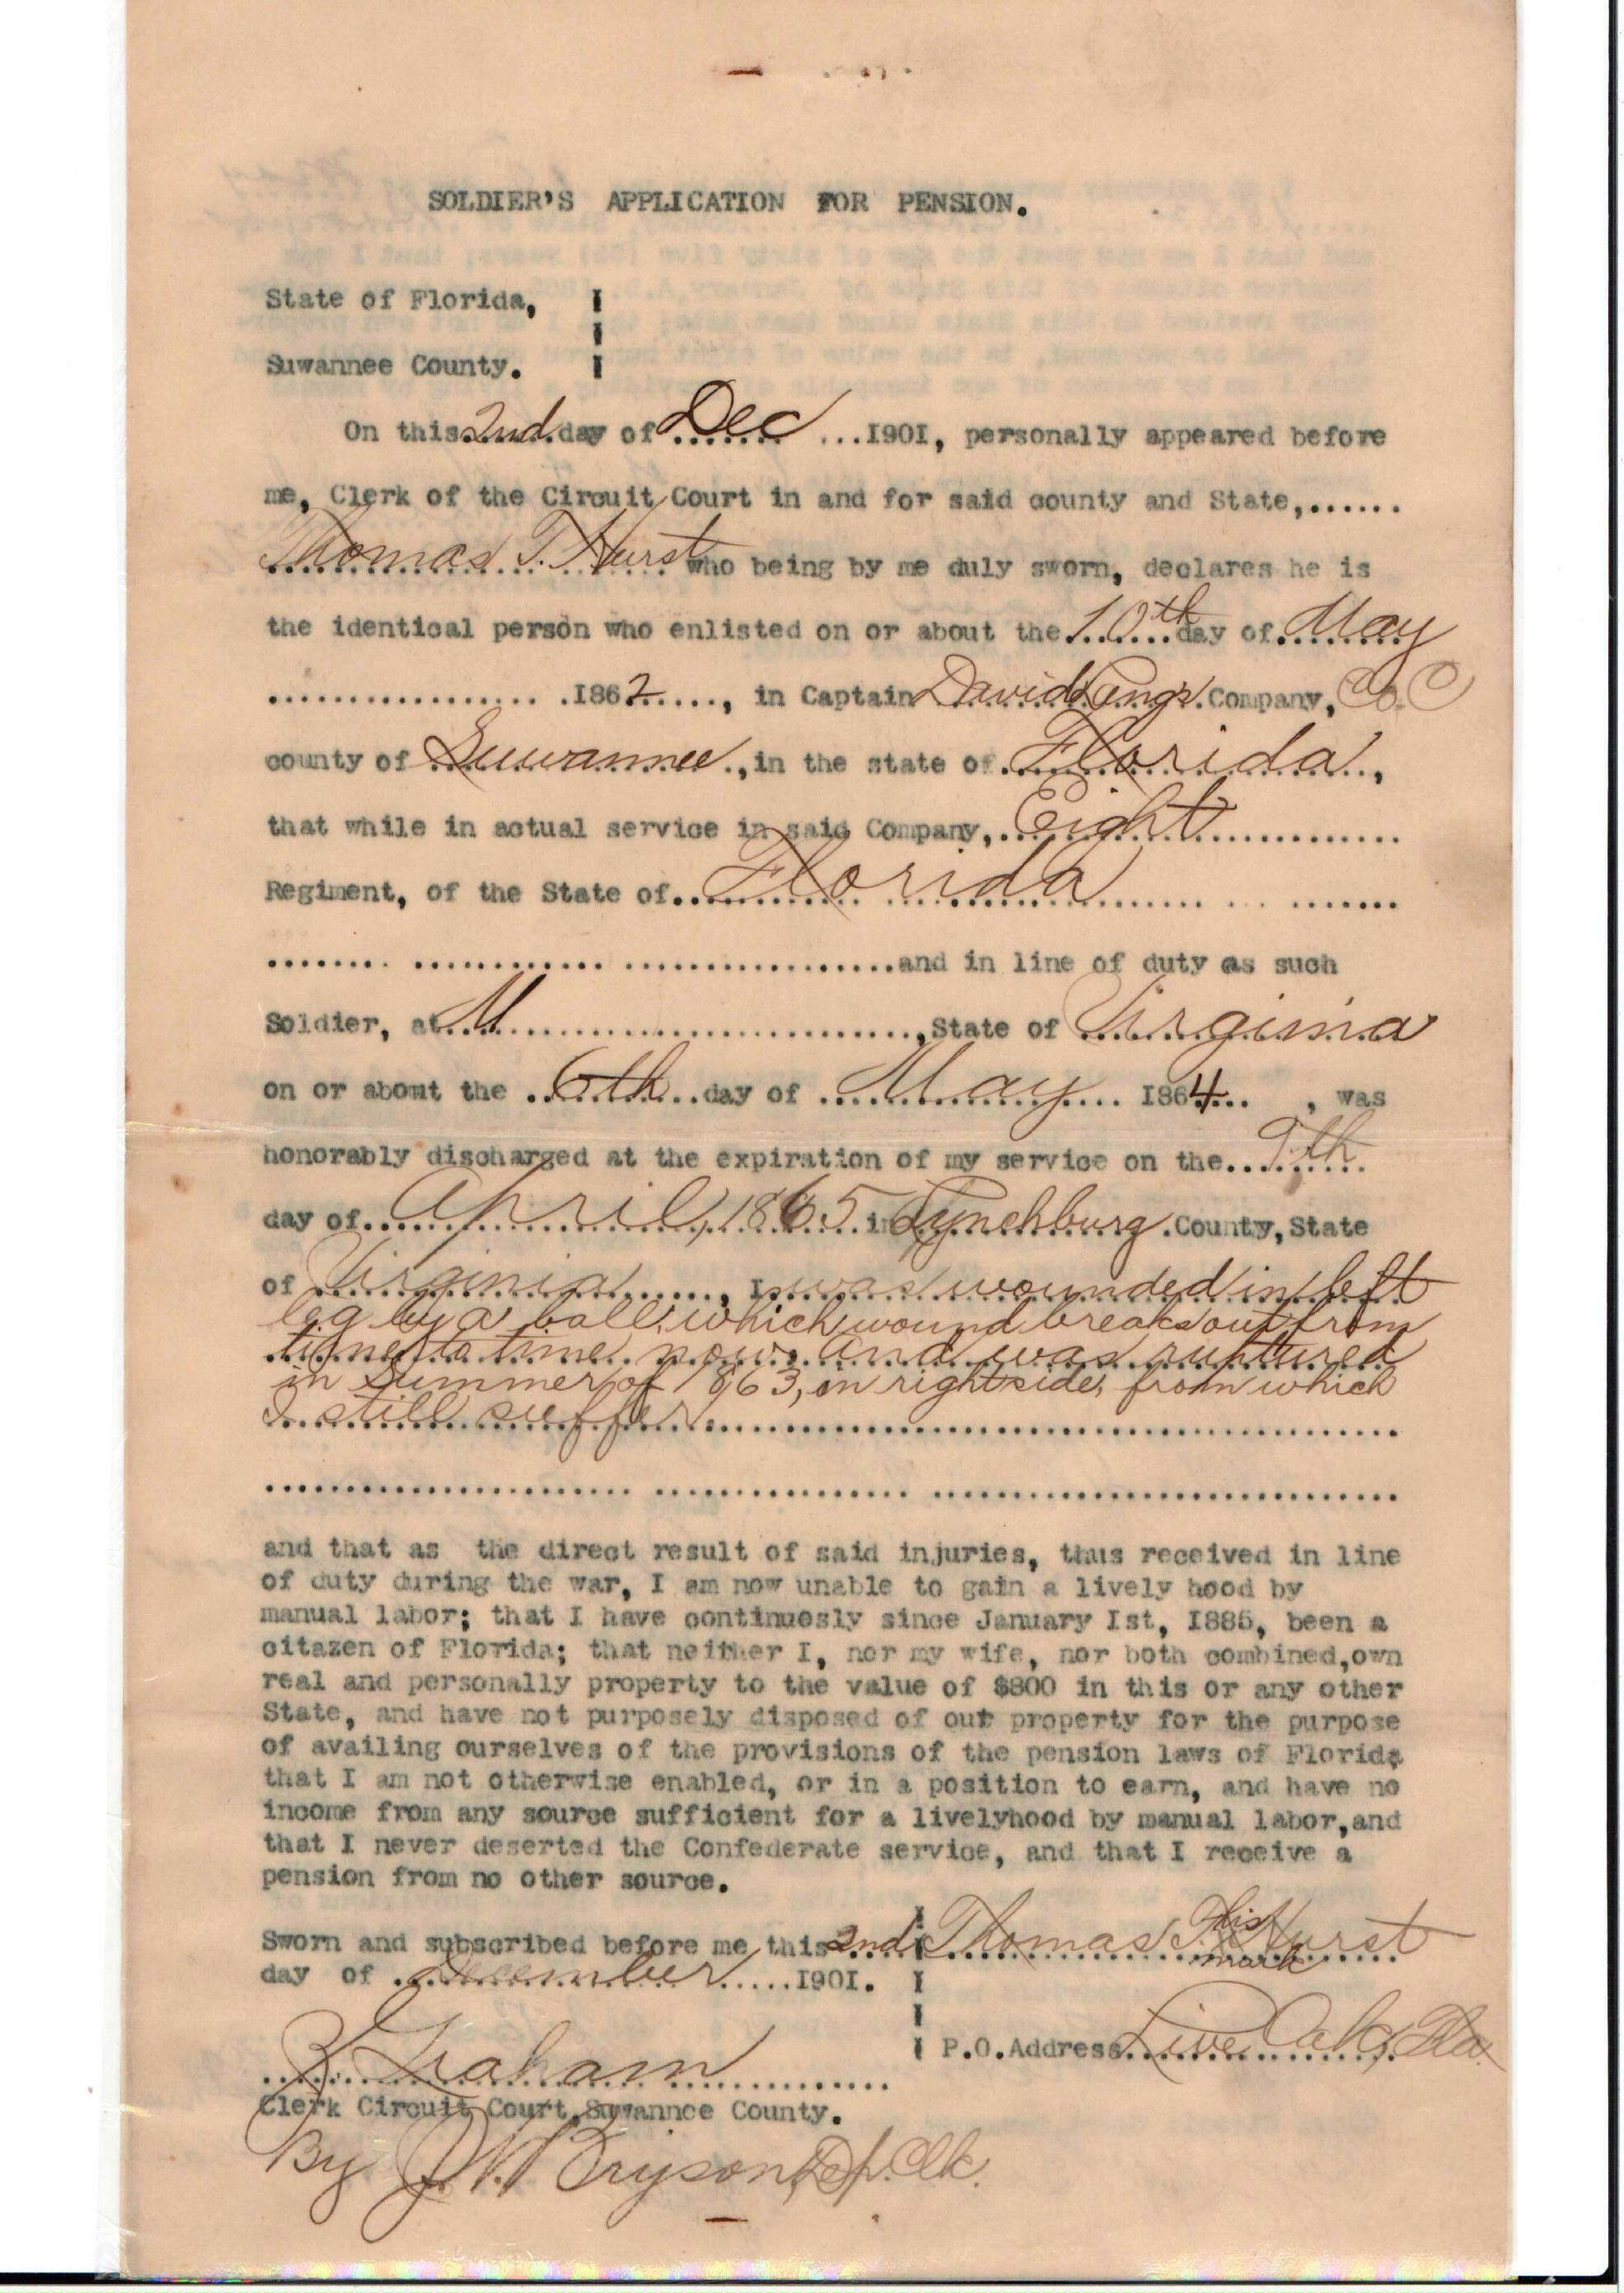 SOLDIER'S APPLICATION FOR PENSION.
State of Florida,
Suwannee County.
On this 2nd day of Dec 1901, personally appeared before
me, Clerk of the Circuit Court in and for said county and State,......
Thomas T. Hurst who being by me duly sworn, declares he is
the identical person who enlisted on or about the 10th day of May
1862, in Captain David Company, Co. C
county of Suwannee, in the state of Florida,
that while in actual service in said Company, Eight
Regiment, of the State of Florida
and in line of duty as such
Soldier, at M, State of Virginia
on or about the 6th day of May 1864, was
honorably discharged at the expiration of my service on the 9th
day of April, 1865 in Lynchburg County, State
of Virginia, I was wounded in left
leg by a ball, which wound breaks out from
time to time now. and was ruptured
in Summer of 1863, on right side, from which
I still suffer.
and that as the direct result of said injuries, thus received in line
of duty during the war, I am now unable to gain a lively hood by
manual labor; that I have continuosly since January Ist, I885, been a
citazen of Florida; that neither I, nor my wife, nor both combined,own
real and personally property to the value of $800 in this or any other
State, and have not purposely disposed of our property for the purpose
of availing ourselves of the provisions of the pension laws of Florida
that I am not otherwise enabled, or in a position to earn, and have no
income from any source sufficient for a livelyhood by manual labor,and
that I never deserted the Confederate service, and that I receive a
pension from no other source.
Sworn and subscribed before me this 2nd
day of December 1901.
Thomas T. his mark Hurst
P.O.Address Live Oak, Fla.
Graham
Clerk Circuit Court,Suwannce County.
By J. W. Bryson, Dp. Clk.